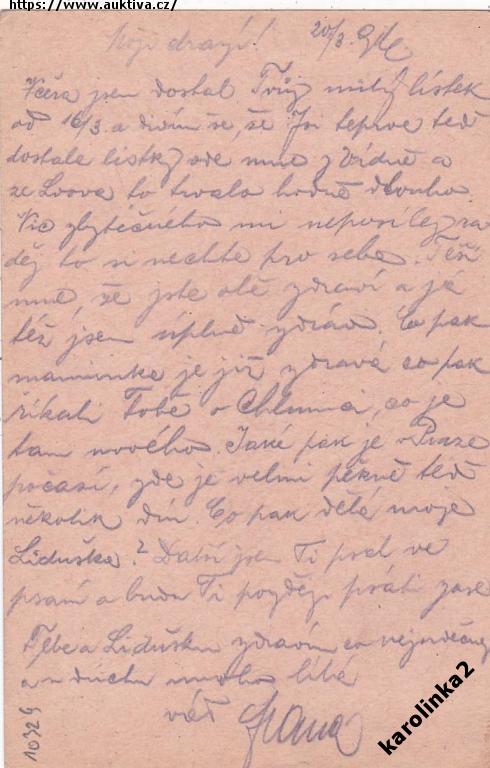 https://www.auktiva.cz/
Moji drazí! 20/3.
Včera jsem dostal Tvůj milý lístek
od 16/3. a divím se, že Jsi teprve teď
dostala lístky ode mne z Vídně a
ze Lvova to trvalo hodně dlouho.
Nic zbytečného mi neposílej ra
děj to si nechte pro sebe. Těší
mne, že jste obě zdraví a já
též jsem úplně zdráv. Co pak
maminka je již zdravá co pak
říkali Tobě v Chlumci, co je
tam nového. Jaké pak je v Praze
počasí, zde je velmi pěkně teď
několik dní. Co pak dělá moje
Liduška? Další jsem Ti psal ve
psaní a budu Ti později psáti zase
Tebe a Lidušku zdravím co nejsrdečněj
a v duchu mnoho líbá
váš
10329
karolinka2